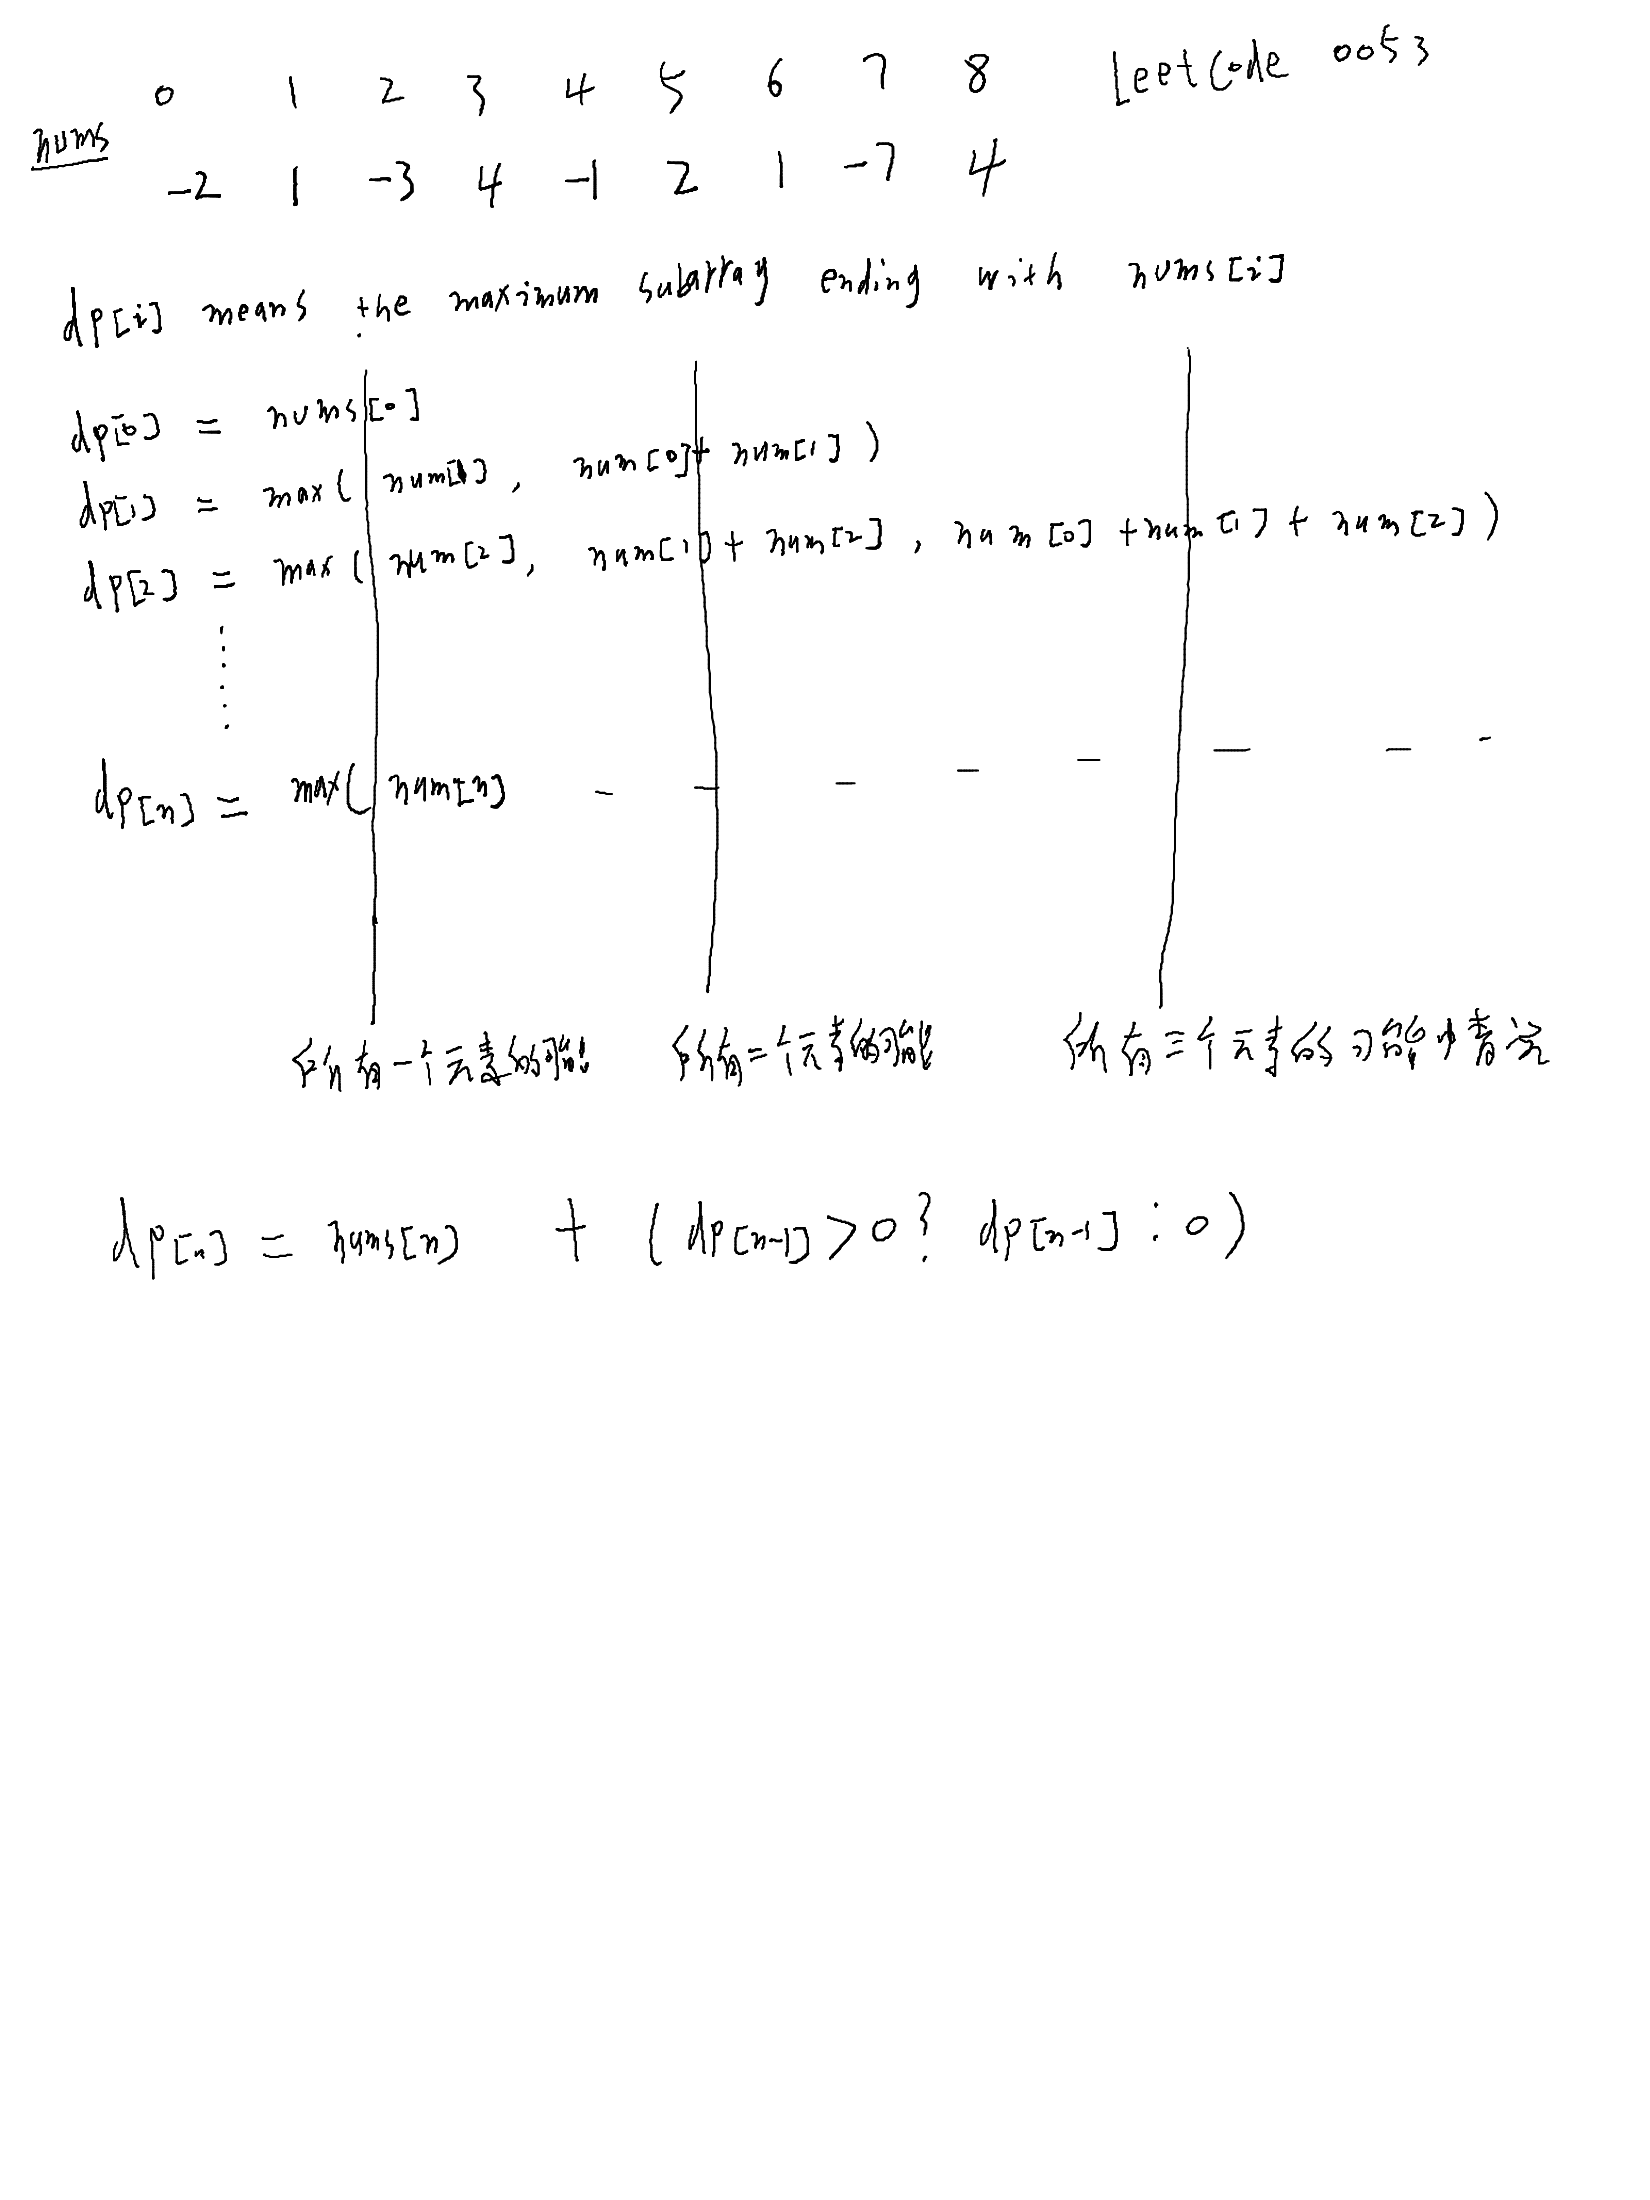 0 1 2 3 4 5 6 7 8 LeetCode 0053
nums
-2 1 -3 4 -1 2 1 -7 4
dp[i] means the maximum subarray ending with nums[i]
dp[0] = nums[0]
dp[1] = max( num[1], num[0]+ num[1] )
dp[2] = max( num[2], num[1]+ num[2], num[0] +num[1] + num[2] )
......
dp[n] = max( num[n] - - - - - - - -
所有一个元素的可能 所有二个元素的可能 所有三个元素的可能中情况
dp[n] = nums[n] + ( dp[n-1] > 0 ? dp[n-1] : 0 )